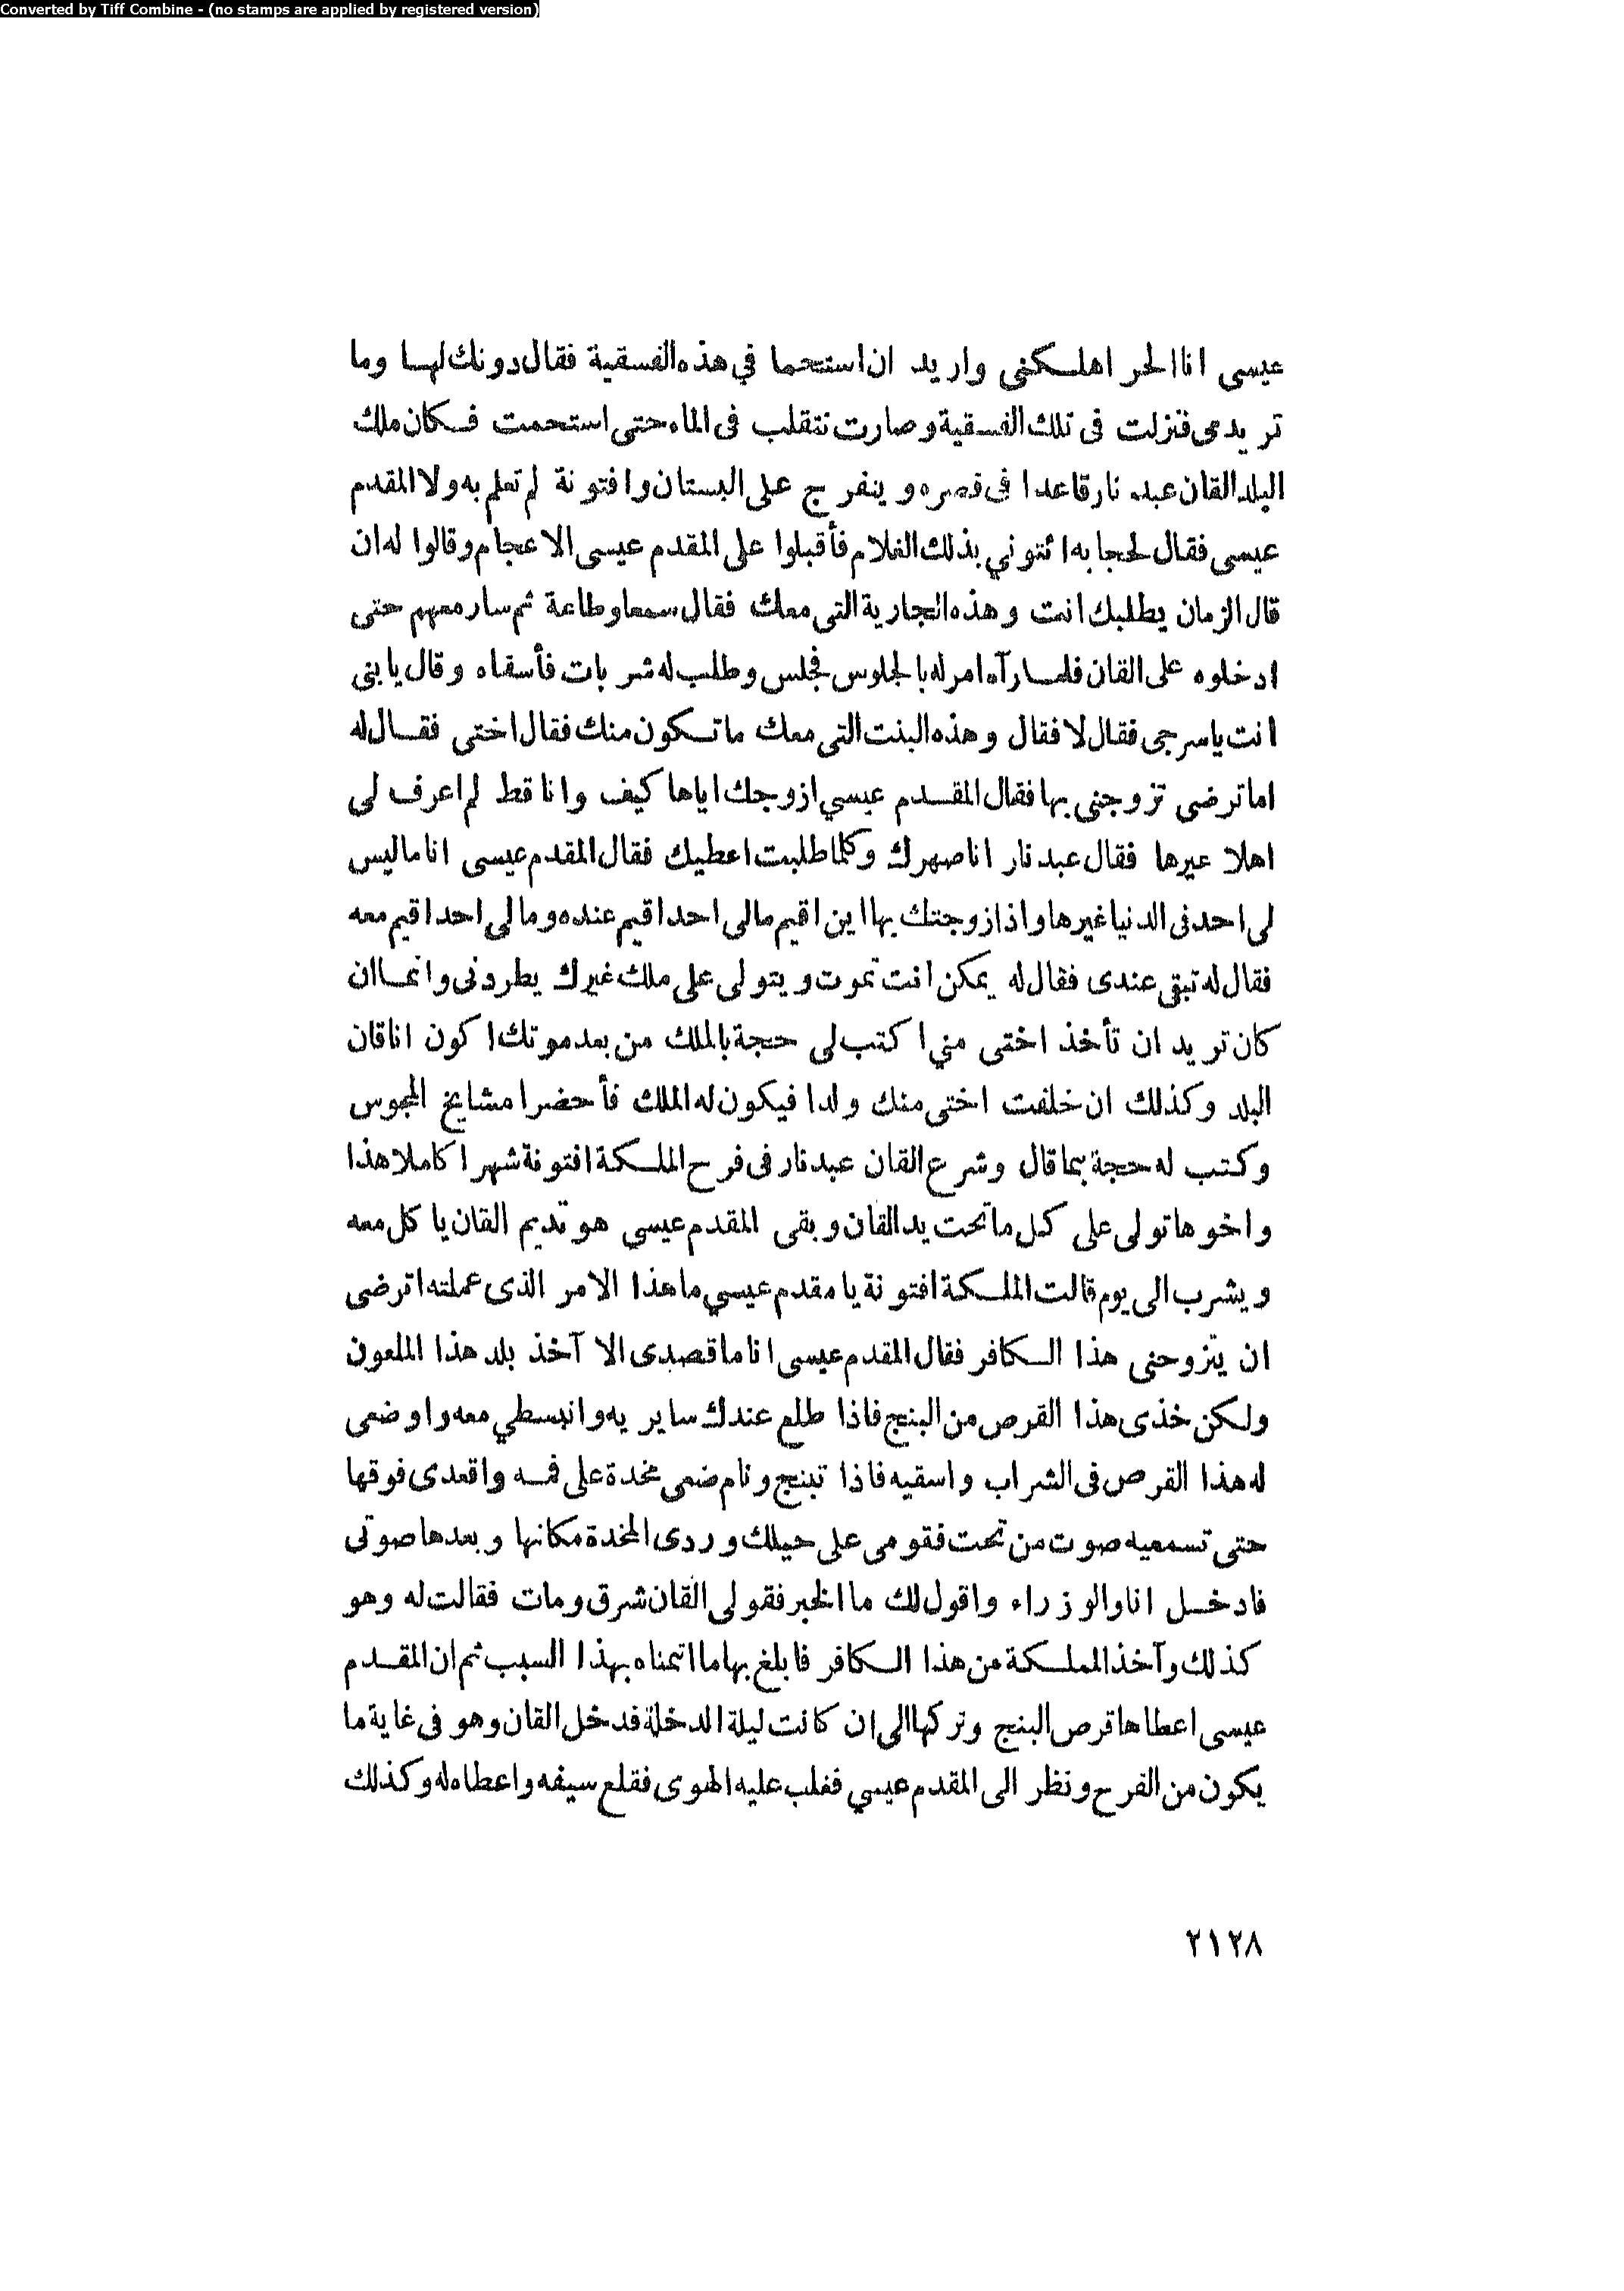 Converted by Tiff Combine - (no stamps are applied by registered version)
عيسى انا الحر اهلكنى واريد ان استحما في هذه الفسقية فقال دونك لها وما
تريدى فنزلت فى تلك الفسقية وصارت تتقلب فى الماء حتى استحمت فكان ملك
البلد القان عبد نار قاعدا فى قصره وينفرج على البستان وافتونة لم تعلم به ولا المقدم
عيسى فقال لحجابه ائتوني بذلك الغلام فأقبلوا على المقدم عيسى الاعجام وقالوا له ان
قال الزمان يطلبك انت وهذه الجارية التى معك فقال سمعا وطاعة ثم سار معهم حتى
ادخلوه على القان فلما رآه امر له بالجلوس فجلس وطلب له شربات فأسقاه وقال يا بنى
انت ياسرجى فقال لا فقال وهذه البنت التى معك ما تكون منك فقال اختى فقال له
اما ترضى تزوجنى بها فقال المقدم عيسي ازوجك اياها كيف وانا قط لم اعرف لى
اهلا عيرها فقال عبد نار انا صهرك وكلما طلبت اعطيك فقال المقدم عيسى انا ما ليس
لى احد فى الدنيا غيرها واذا زوجتك بها اين اقيم مالى احد اقيم عنده ومالى احد اقيم معه
فقال له تبقى عندى فقال له يمكن انت تموت ويتولى على ملك غيرك يطردونى وانما ان
كان تريد ان تأخذ اختى مني اكتب لى حجة بالملك من بعد موتك اكون انا قان
البلد وكذلك ان خلفت اختى منك ولدا فيكون له الملك فأحضرا مشايخ المجوس
وكتب له حجة بما قال وشرع القان عبد نار فى فرح الملكة افتونة شهرا كاملا هذا
واخوها تولى على كل ما تحت يد القان وبقى المقدم عيسي هو تديم القان ياكل معه
ويشرب الى يوم قالت الملكة افتونة يا مقدم عيسي ما هذا الامر الذى عملته اترضى
ان يتزوحنى هذا الكافر فقال المقدم عيسى انا ما قصدى الا آخذ بلد هذا الملعون
ولكن خذى هذا القرص من البنج فاذا طلع عندك سايريه وانبسطي معه واوضعى
له هذا القرص فى الشراب واسقيه فاذا تبنج ونام ضعى مخدة على فمه واقعدى فوقها
حتى تسمعيه صوت من تحت فقومى على حيلك وردى المخدة مكانها وبعدها صوتى
فادخل انا والوزراء واقول لك ما الخبر فقولى القان شرق ومات فقالت له وهو
كذلك وآخذ المملكة من هذا الكافر فابلغ بها ما اتمناه بهذا السبب ثم ان المقدم
عيسى اعطاها قرص البنج وتركها الى ان كانت ليلة الدخلة فدخل القان وهو فى غاية ما
يكون من الفرح ونظر الى المقدم عيسي فغلب عليه الهوى فقلع سيفه واعطاه له وكذلك
٢١٢٨